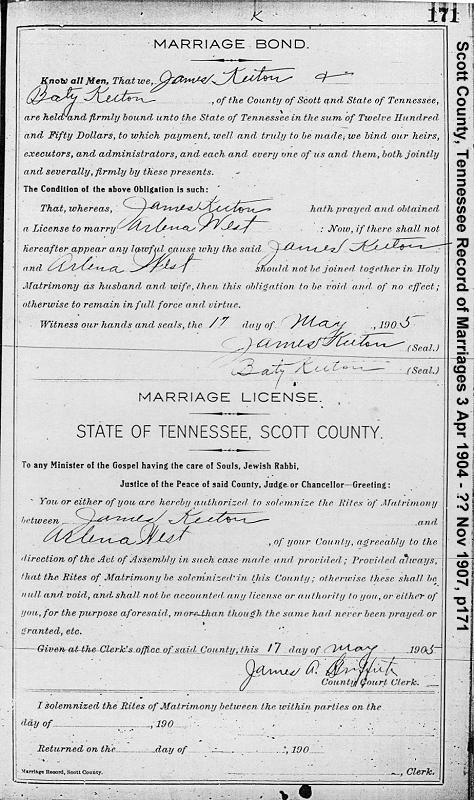 K
171
MARRIAGE BOND.
Know all Men, That we, James Keeton &
Baty Keeton, of the County of Scott and State of Tennessee,
are held and firmly bound unto the State of Tennessee in the sum of Twelve Hundred
and Fifty Dollars, to which payment, well and truly to be made, we bind our heirs,
executors, and administrators, and each and every one of us and them, both jointly
and severally, firmly by these presents.
The Condition of the above Obligation is such:
That, whereas, James Keeton hath prayed and obtained
a License to marry Arlena West : Now, if there shall not
hereafter appear any lawful cause why the said James Keeton
and Arlena West should not be joined together in Holy
Matrimony as husband and wife, then this obligation to be void and of no effect;
otherwise to remain in full force and virtue.
Witness our hands and seals, the 17 day of May, 1905
James Keeton (Seal.)
Baty Keeton (Seal.)
MARRIAGE LICENSE.
STATE OF TENNESSEE, SCOTT COUNTY.
To any Minister of the Gospel having the care of Souls, Jewish Rabbi,
Justice of the Peace of said County, Judge or Chancellor—Greeting:
You or either of you are hereby authorized to solemnize the Rites of Matrimony
between James Keeton and
Arlena West, of your County, agreeably to the
direction of the Act of Assembly in such case made and provided; Provided always,
that the Rites of Matrimony be solemnized in this County; otherwise these shall be
null and void, and shall not be accounted any license or authority to you, or either of
you, for the purpose aforesaid, more than though the same had never been prayed or
granted, etc.
Given at the Clerk's office of said County, this 17 day of May 1905
James A. Griffith
County Court Clerk.
I solemnized the Rites of Matrimony between the within parties on the
day of , 190
Returned on the day of , 190
Marriage Record, Scott County. , Clerk.
Scott County, Tennessee Record of Marriages 3 Apr 1904 - ?? Nov 1907, p171